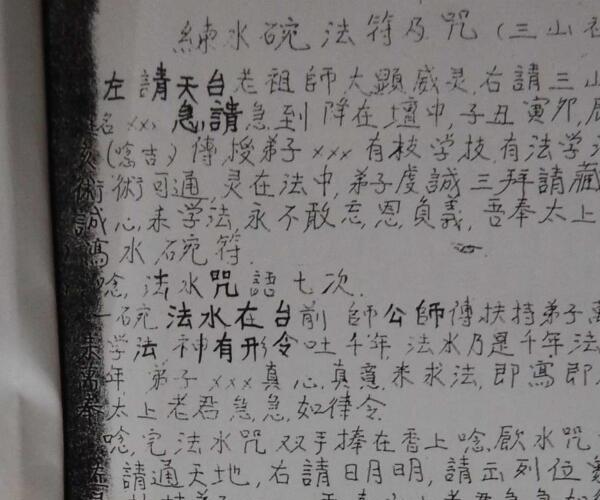 練水碗法符及咒(三山
左請天台老祖師大顯威灵,右請三山
名xxx急請急到降在壇中,子丑寅卯,辰
(唸吉)傳,授弟子xxx有枝学技,有法学
術術可通,灵在法中,弟子虔誠三拜請藏
誠心,未学法,永不敢忘恩負義,吾奉太上
寫水碗符.
唸,法水咒語七次.
一碗法水在台前師公師傳扶持弟子萬
来学法,神有形令吐千年法水乃是千年法
年弟子xxx真心,真意来求法,即寫即
奉太上老君急急,如律令
唸,完法水咒双手捧在香上唸,歐水咒
請通天地,右請日月明,請出列位